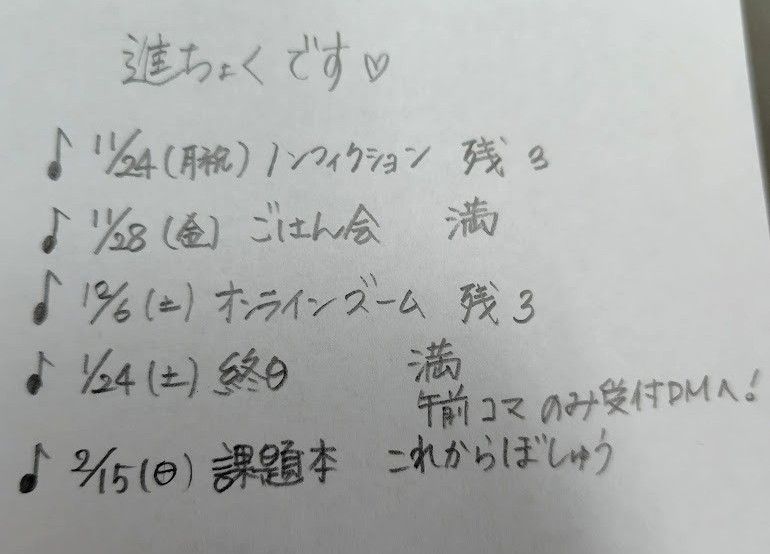 進ちょくです♡
♪ 11/24(月祝) ノンフィクション 残3
♪ 11/28(金) ごはん会 満
♪ 12/6(土) オンラインズーム 残3
♪ 1/24(土) 終日 満
午前コマのみ受付DMへ!
♪ 2/15(日) 課題本 これからぼしゅう